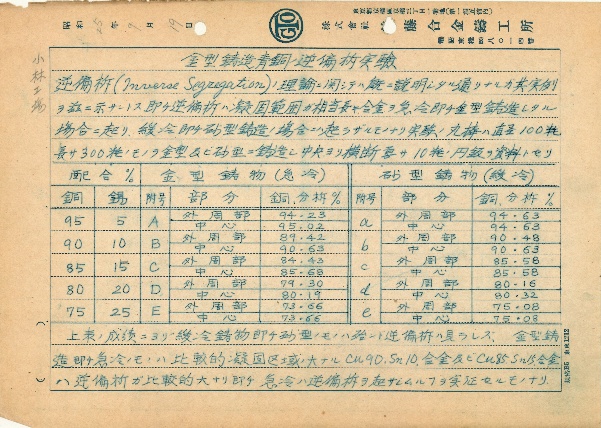 昭和 25 年 9 月 19 日
株式会社 藤合金鑄工所
小林工場
金型鋳造青銅ノ逆偏析実験
逆偏析(Inverse Segregation)ノ理論ニ関シテハ既ニ説明シタル通リナルガ其実例
ヲ茲ニ示サントス即チ逆偏析ハ凝固範囲ガ相当長キ合金ヲ急冷即チ金型鋳造シタル
場合ニ起リ、緩冷即チ砂型鋳造ノ場合ハ起ラザルモノナリ実験ノ丸棒ハ直径100粍
長サ300粍ノモノヲ金型及ビ砂型ニ鋳造シ中央ヨリ横断要サ10粍ノ円鈑ヲ資料トセリ
配合% 金型鋳物(急冷) 砂型鋳物(緩冷)
銅 錫 附号 部分 銅分析% 附号 部分 銅分析%
95 5 A 外周部 94.23 a 外周部 94.63
中心 95.02 中心 94.63
90 10 B 外周部 89.42 b 外周部 90.48
中心 90.63 中心 90.63
85 15 C 外周部 84.43 c 外周部 85.58
中心 85.68 中心 85.58
80 20 D 外周部 79.30 d 外周部 80.16
中心 80.19 中心 80.32
75 25 E 外周部 73.66 e 外周部 75.08
中心 73.66 中心 75.08
上表ノ成績ニヨリ緩冷鋳物即チ砂型ノモノハ殆ンド逆偏析ハ見ラレズ 金型鋳
造即チ急冷ノモノハ比較的凝固区域ノ大ナルCu90.Sn10.合金及ビCu85 Sn15合金
ハ逆偏析ガ比較的大ナリ即チ急冷ハ逆偏析ヲ起サシムル事ヲ実証セルモノナリ